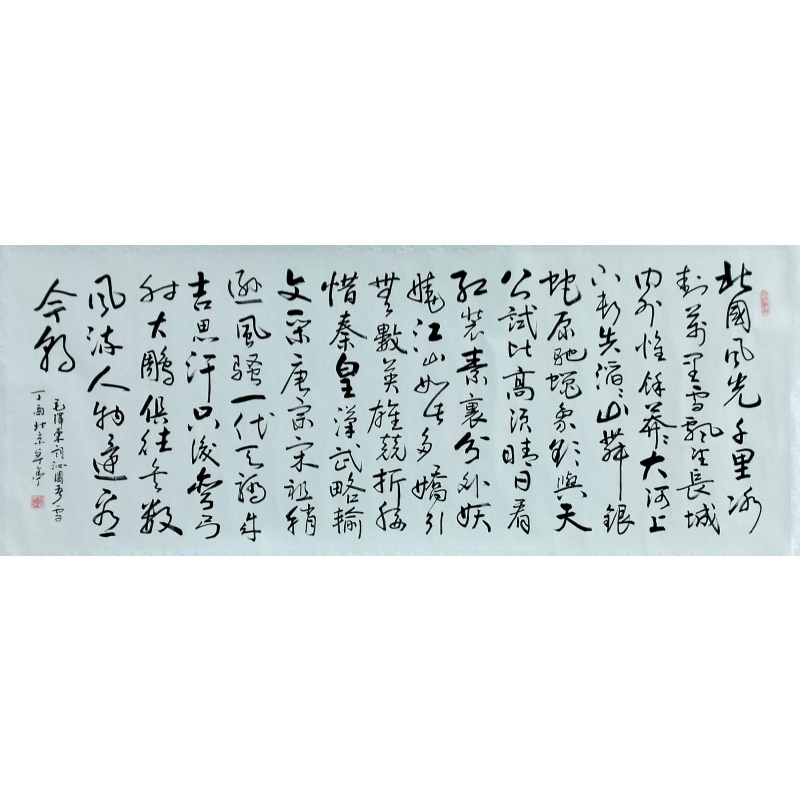 北國風光千里冰
封萬里雪飄望長城
内外惟餘莽莽大河上
下頓失滔滔山舞銀
蛇原馳蠟象欲與天
公試比高須晴日看
紅裝素裹分外妖
嬈江山如此多嬌引
無數英雄競折腰
惜秦皇漢武略輸
文采唐宗宋祖稍
遜風騷一代天驕成
吉思汗只識彎弓
射大鵰俱往矣數
風流人物還看
今朝
毛澤東詞沁園春雪
丁酉北京